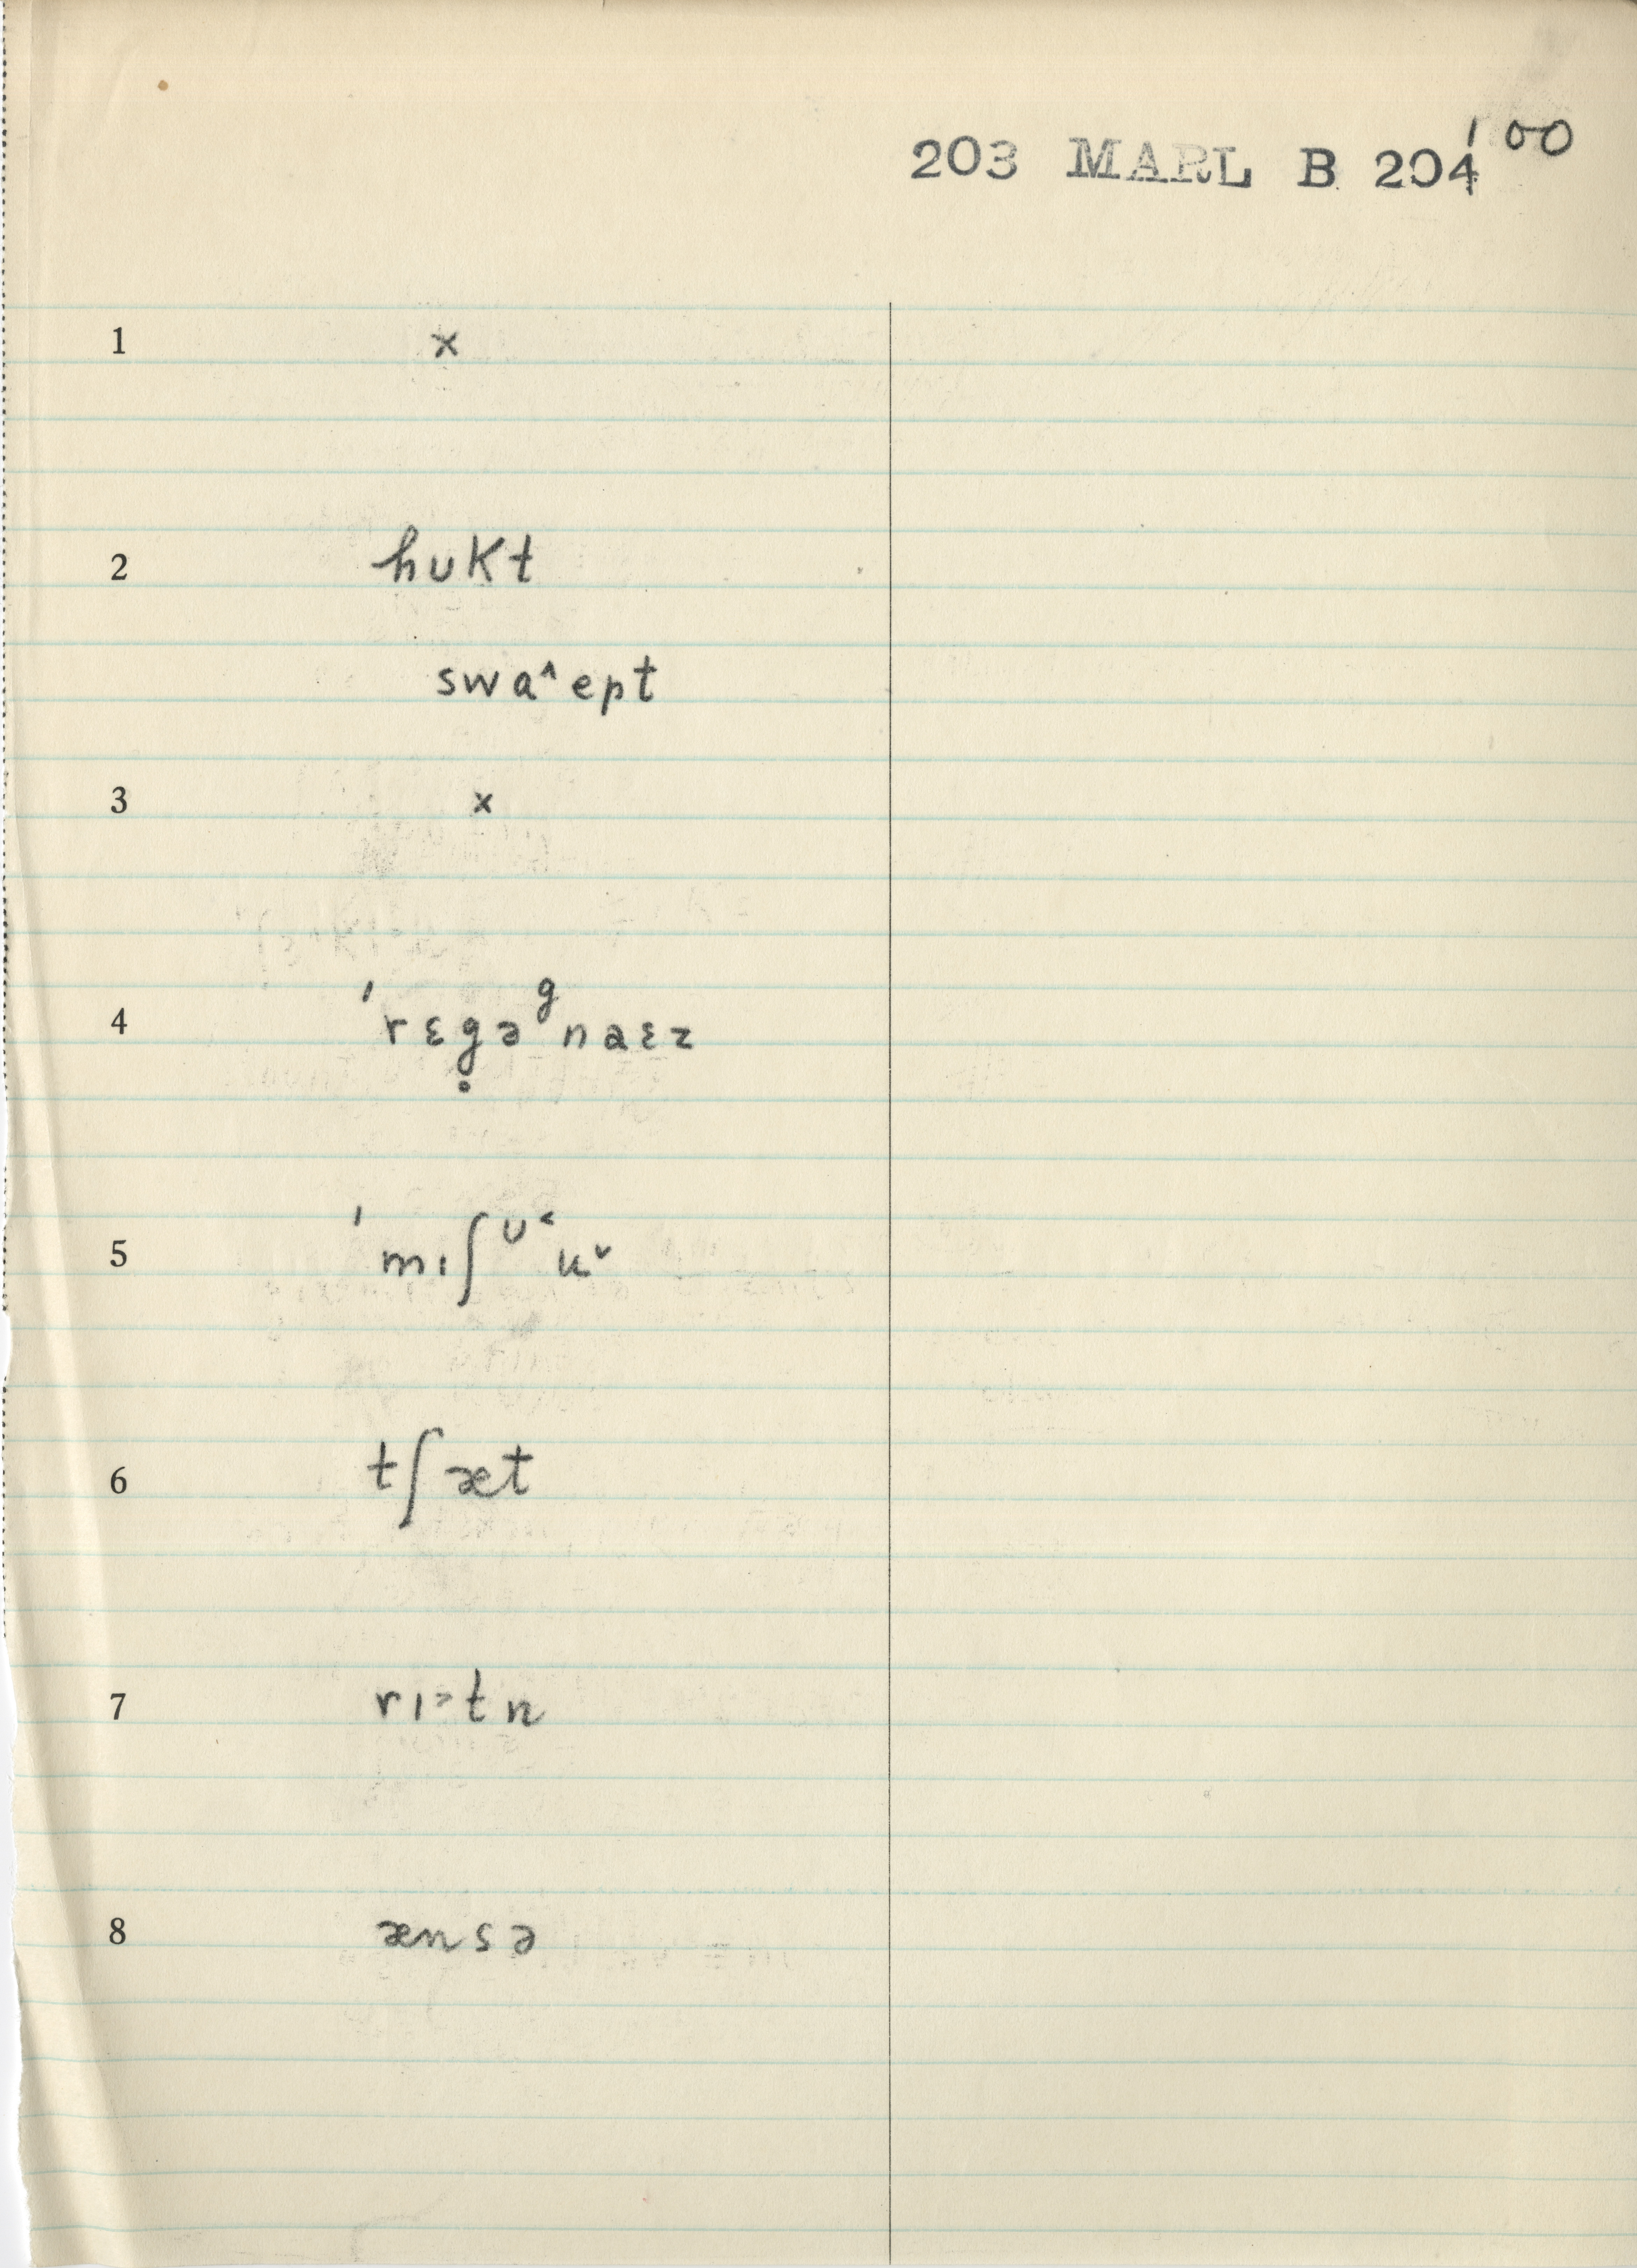 203 MARL B 204 100
1 x
2 hᴜKt
swa˄ept
3 x
4 ˈrɛg̥əᵍnaɛz
5 ˈmıʃᶷ˂u˅
6 tʃæt
7 rı˃tn
8 ænsə